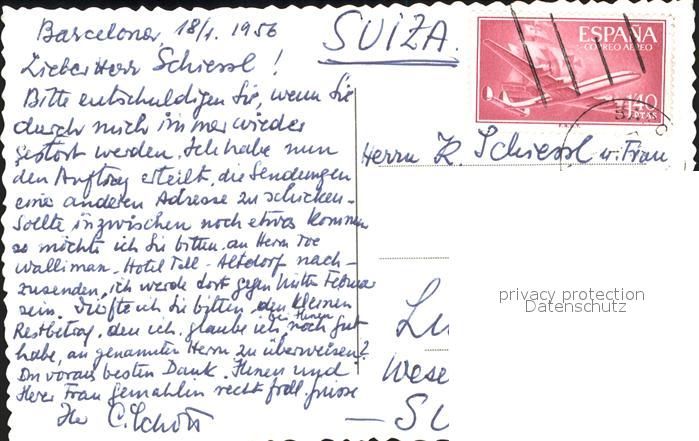 Barcelona, 18/1. 1956
SUIZA.
ESPAÑA
CORREO AEREO
1'40
PTAS
Lieber Herr Schiessl!
Bitte entschuldigen Sie, wenn Sie
durch mich immer wieder
gestört werden. Ich habe nun
den Auftrag erteilt, die Sendungen
eine anderen Adresse zu schicken.
Sollte inzwischen noch etwas kommen
so möchte ich Sie bitten, an Herrn
Walliman - Hotel Tell - Altdorf nach-
zusenden, ich werde dort gegen Mitte Februar
sein. Dürfte ich Sie bitten, den kleinen
Restbetrag, den ich, glaube ich, bei Ihnen noch gut
habe, an genannten Herrn zu überweisen?
Im voraus besten Dank. Ihnen und
Ihrer Frau Gemahlin recht frdl. Grüsse
Ihr C. Schott
Herrn K. Schiessl u. Frau
privacy protection
Datenschutz
Lu
Wese